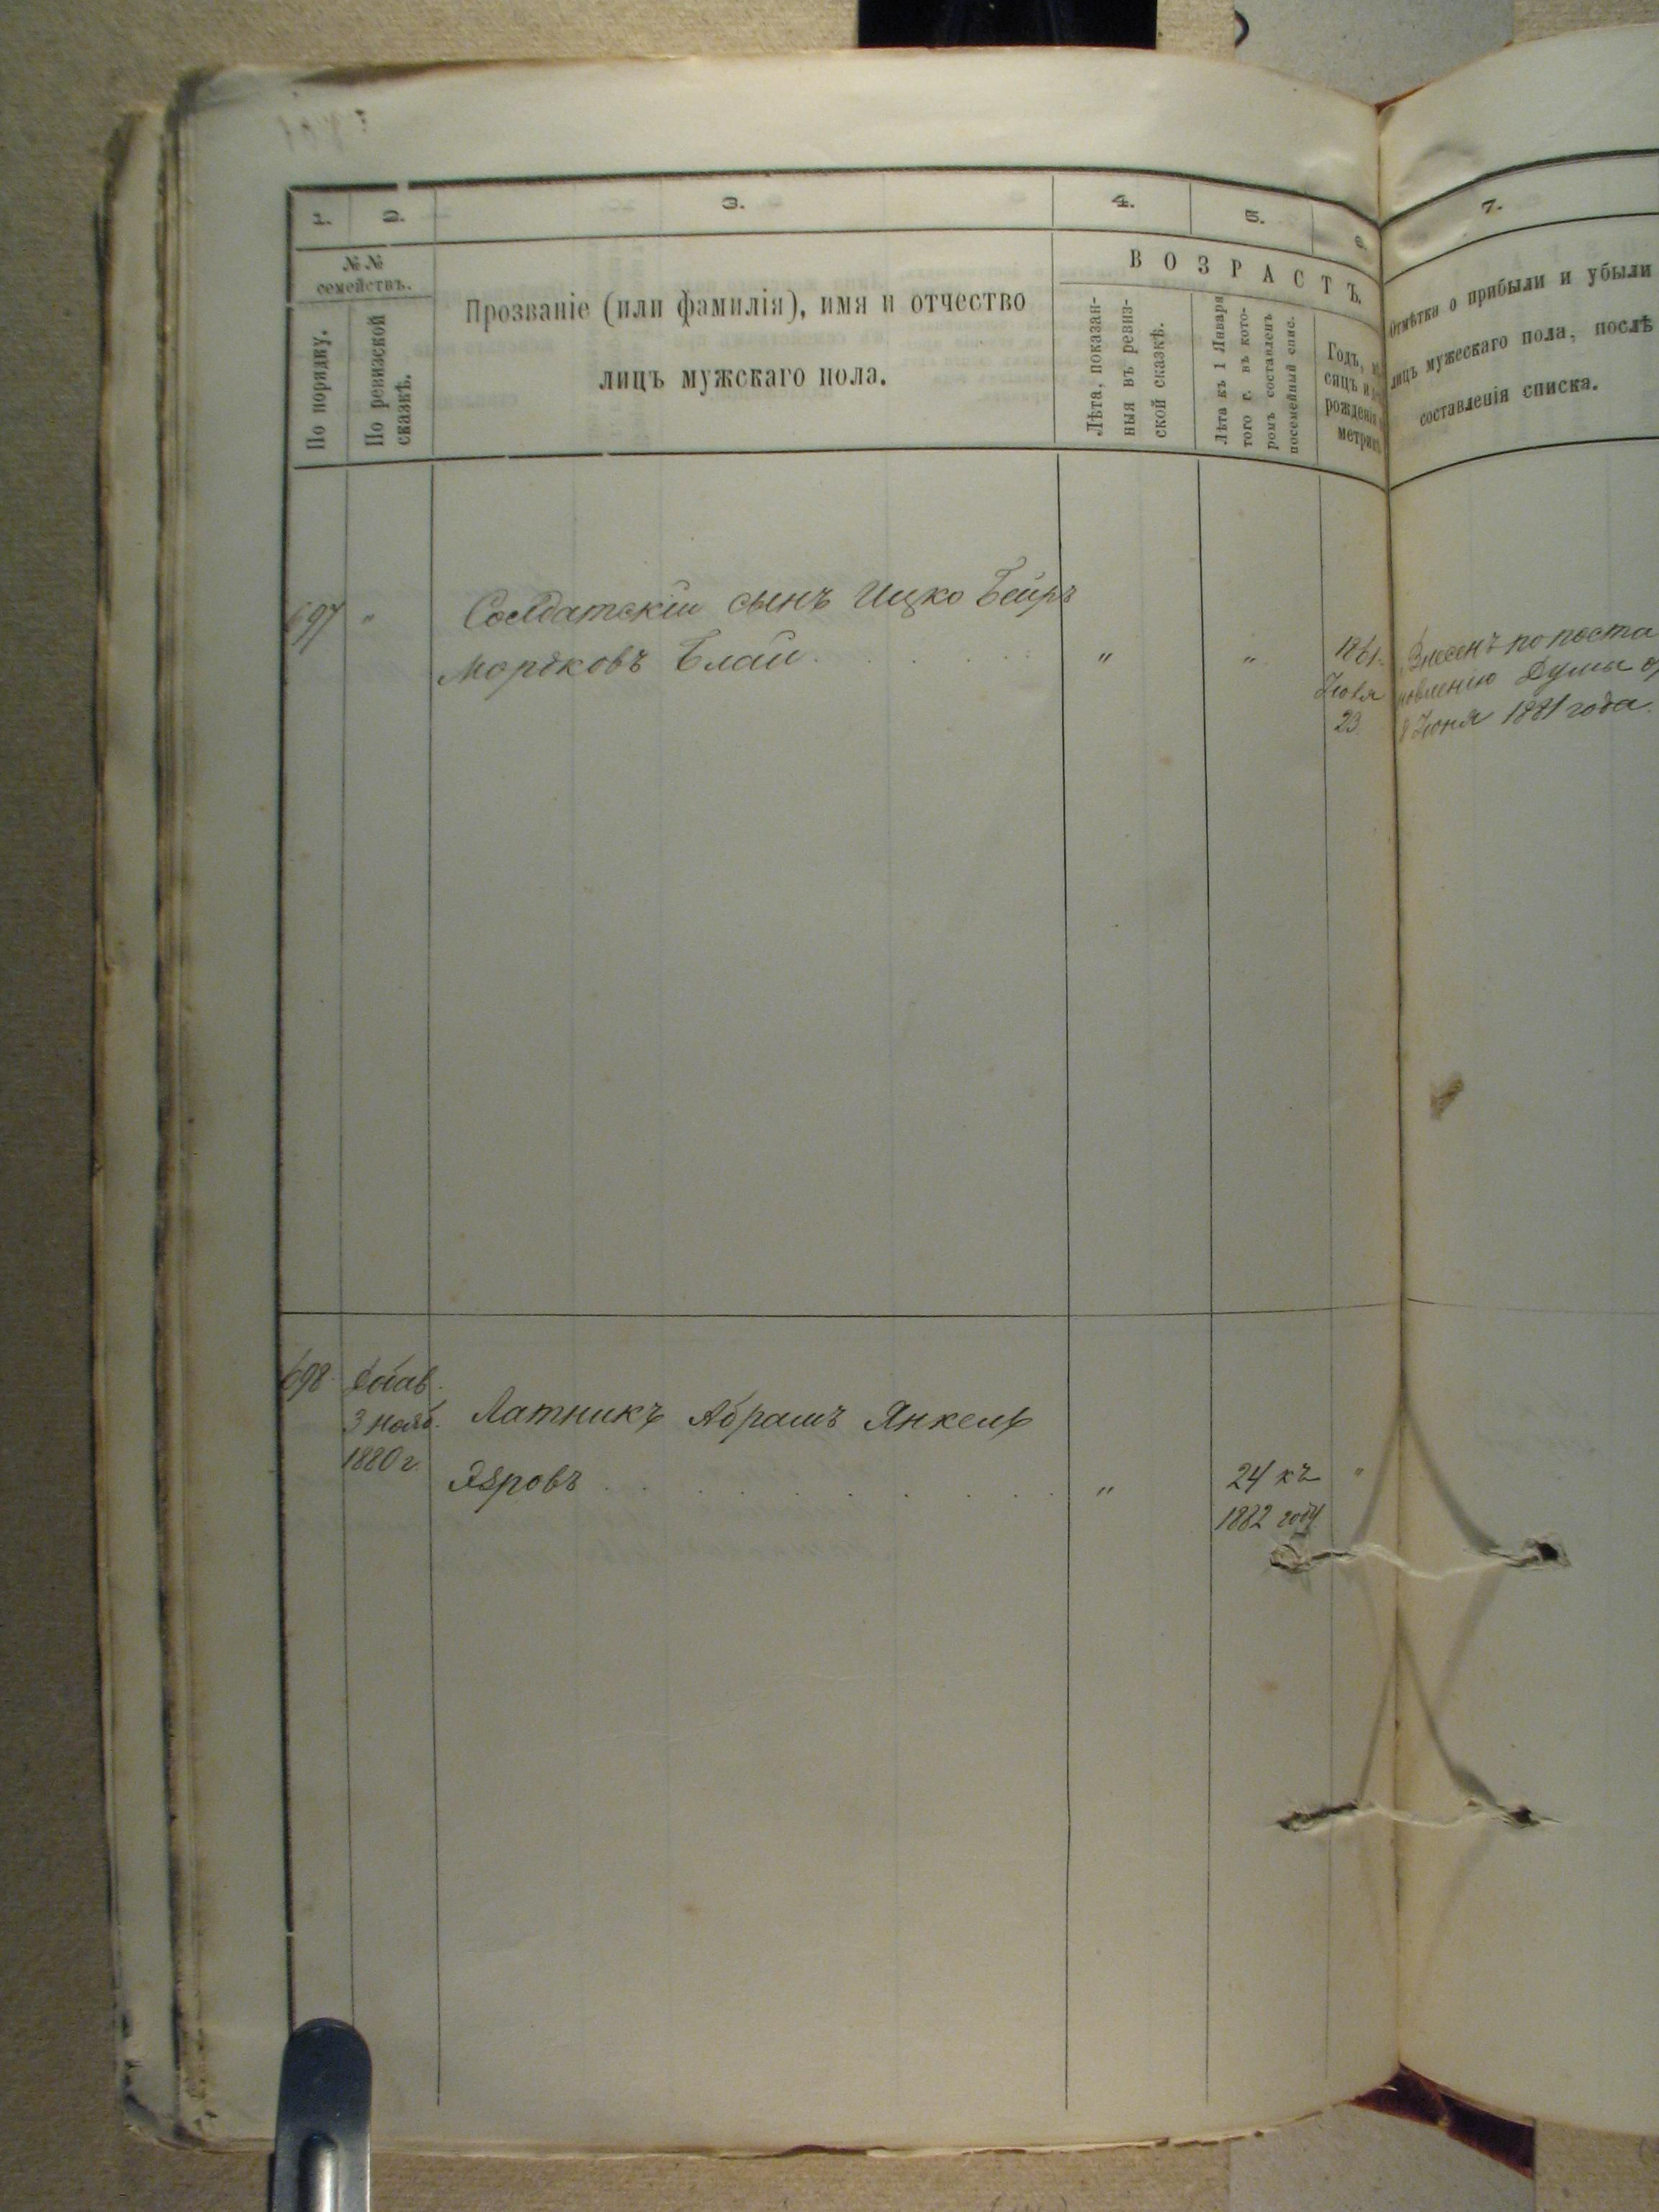 1.
2.
3.
4.
5.
6.
7.
№ №
семействъ.
По порядку.
По ревизской
сказкѣ.
Прозваніе (или фамилія), имя и отчество
лицъ мужскаго пола.
ВОЗРАСТЪ.
Лѣта, показан-
ныя въ ревиз-
ской сказкѣ.
Лѣта къ 1 Января
того г. въ кото-
ромъ составленъ
посемейный спис.
Годъ,
сяцъ и
рожденія
метрик
Отмѣтки о прибыли и убыли
лицъ мужескаго пола, послѣ
составленія списка.
697 " Солдатскій сынъ Ицко Бейръ
Мордковъ Блай " "
1861.
Іюля
23.
Внесенъ по поста
новленію Думы от
8 Іюня 1881 года.
698
3 нояб.
1880 г.
Латникъ Абрамъ Янкель
"
24 къ
1882 году
"